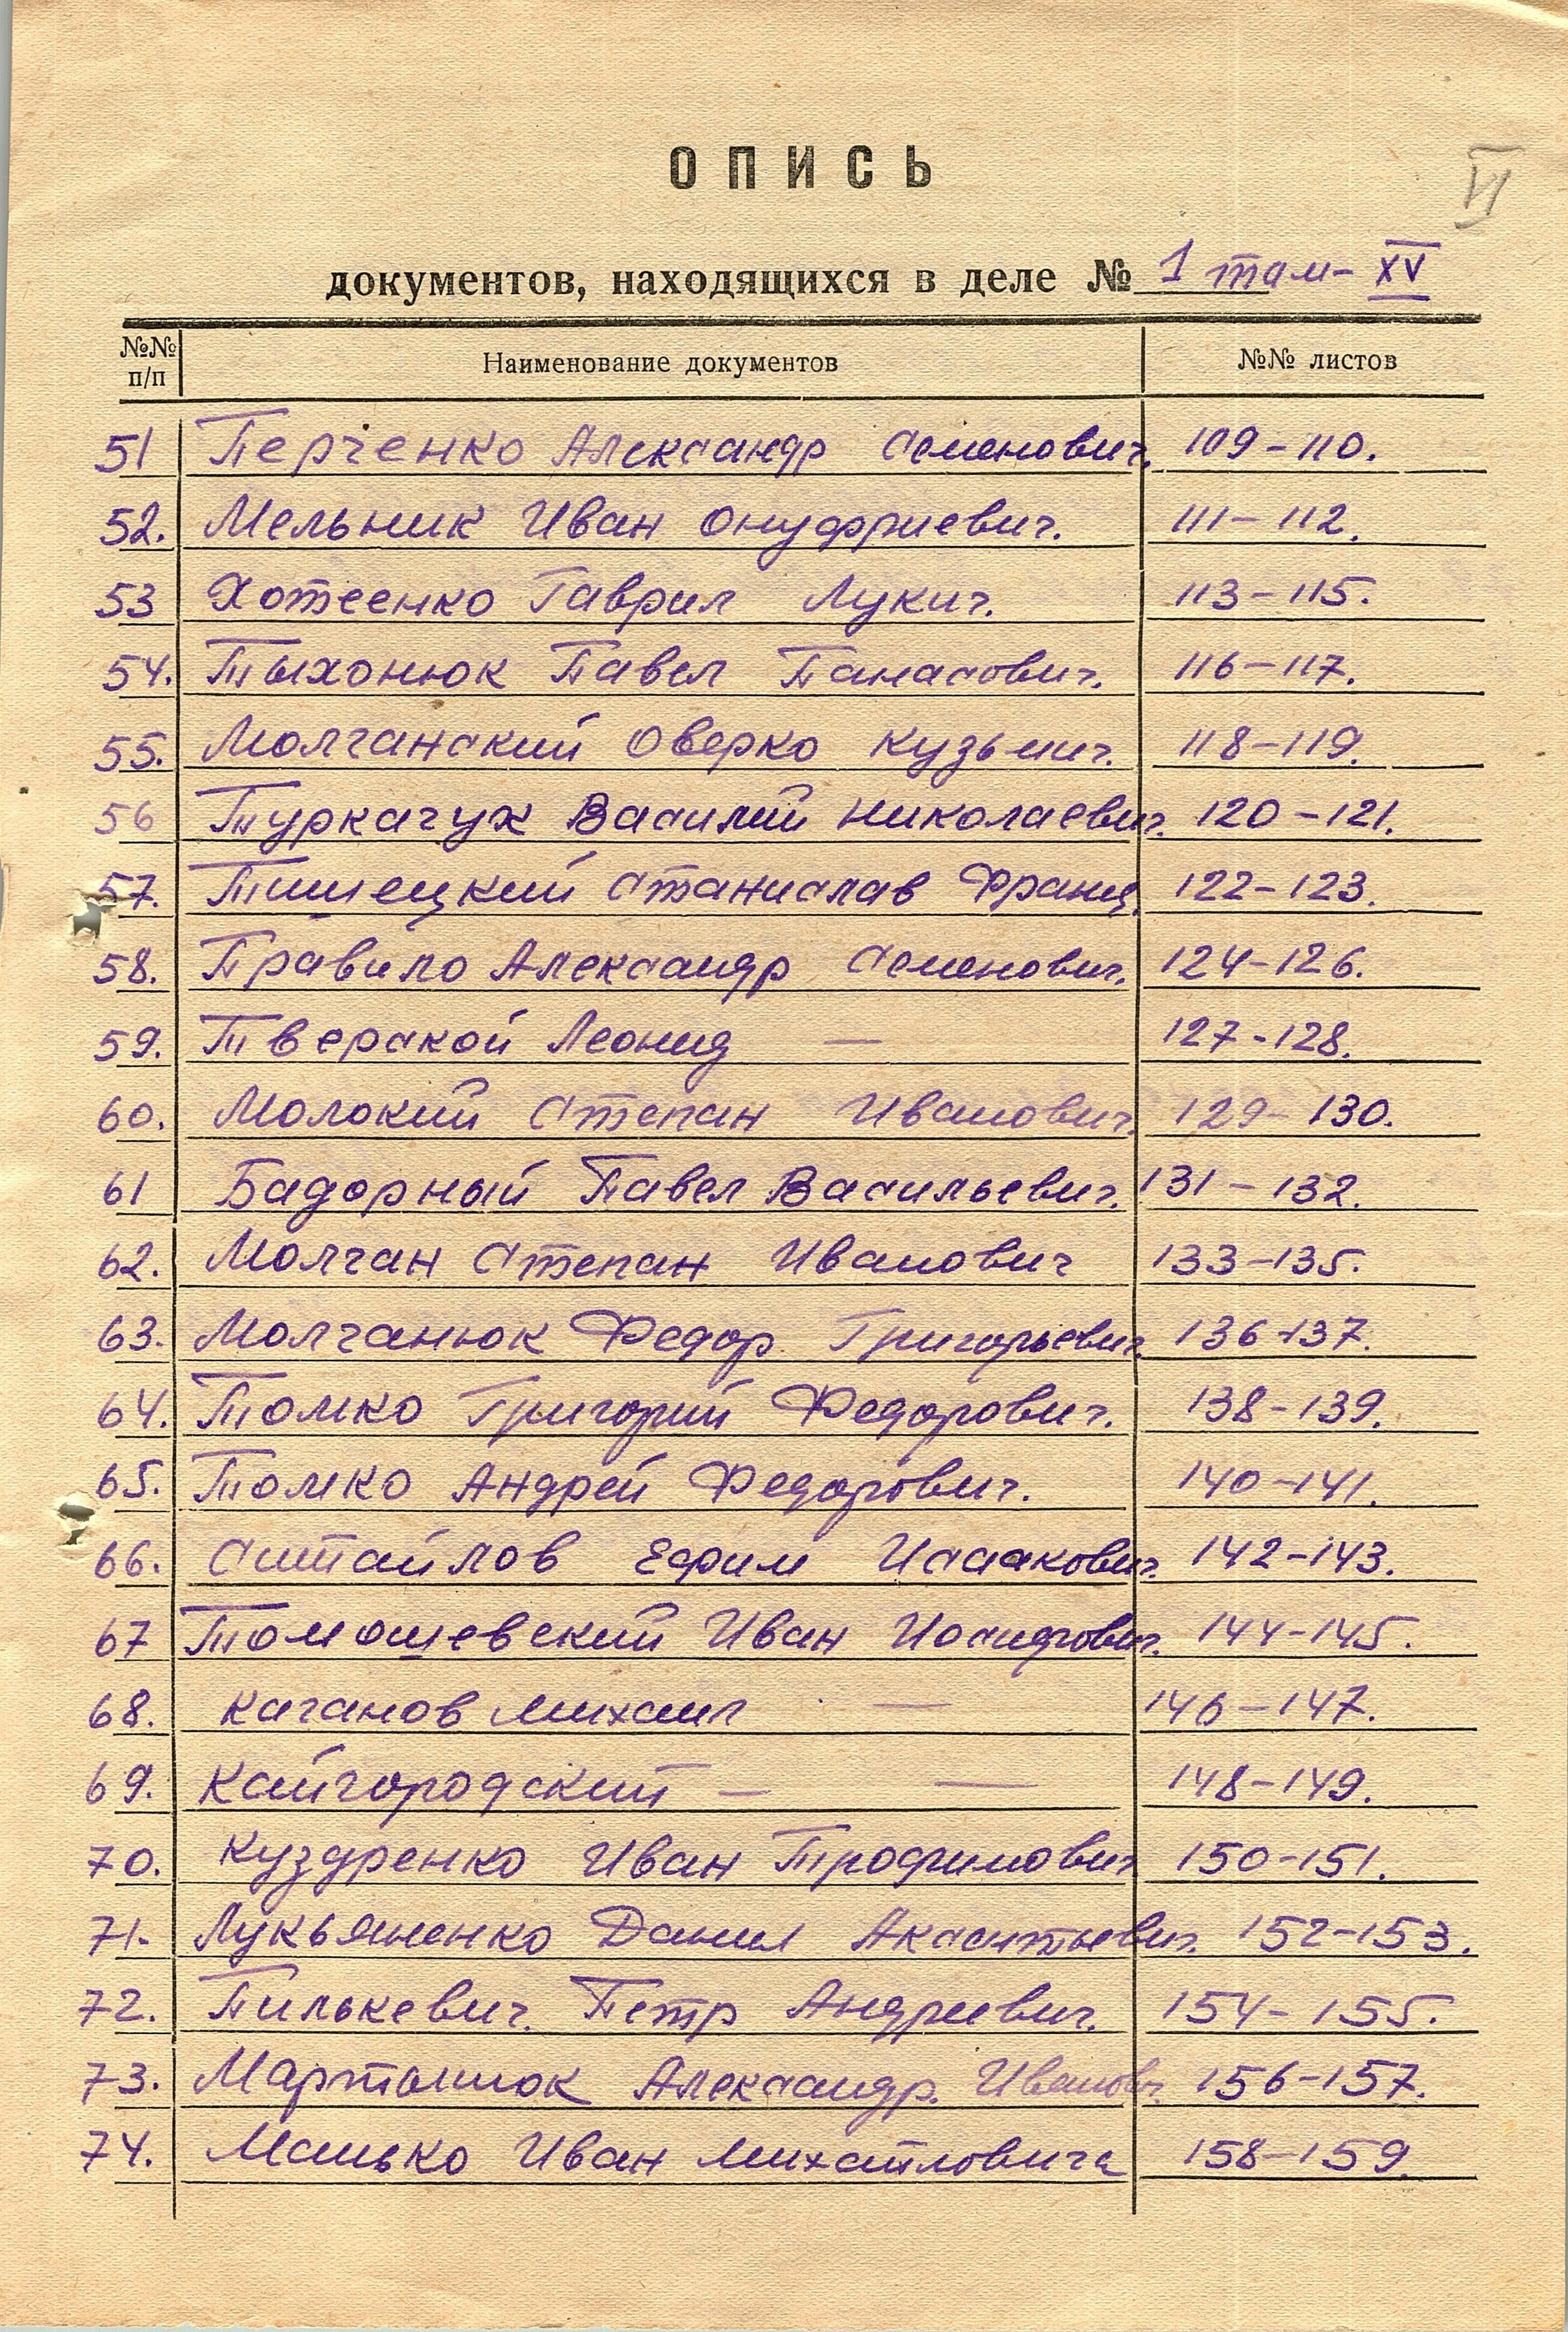 VI
ОПИСЬ
документов, находящихся в деле № 1 том- XV
№№ п/п Наименование документов №№ листов
51 Перченко Александр Семенович. 109-110.
52. Мельник Иван Онуфриевич. 111-112.
53 Хотеенко Гаврил Лукич. 113-115.
54. Тыхонюк Павел Панасович. 116-117.
55. Молчанский Оверко Кузьмич. 118-119.
56 Туркачук Василий Николаевич. 120-121.
57. Тишецкий Станислав Франц. 122-123.
58. Правило Александр Семенович. 124-126.
59. Тверской Леонид — 127-128.
60. Молокий Степан Иванович. 129-130.
61 Бадорный Павел Васильевич. 131-132.
62. Молчан Степан Иванович 133-135.
63. Молчанюк Федор Григорьевич. 136-137.
64. Томко Григорий Федорович. 138-139.
65. Томко Андрей Федорович. 140-141.
66. Ефим Исаакович. 142-143.
67 Томошевский Иван Иосифович. 144-145.
68. Каганов Михаил — 146-147.
69. Кайгородский — — 148-149.
70. Куздренко Иван Трофимович 150-151.
71. Лукьяненко Данил 152-153.
72. Пилькевич. Петр Андреевич. 154-155.
73. Мартынюк Александр. Иванович. 156-157.
74. Манько Иван Михайловича 158-159.